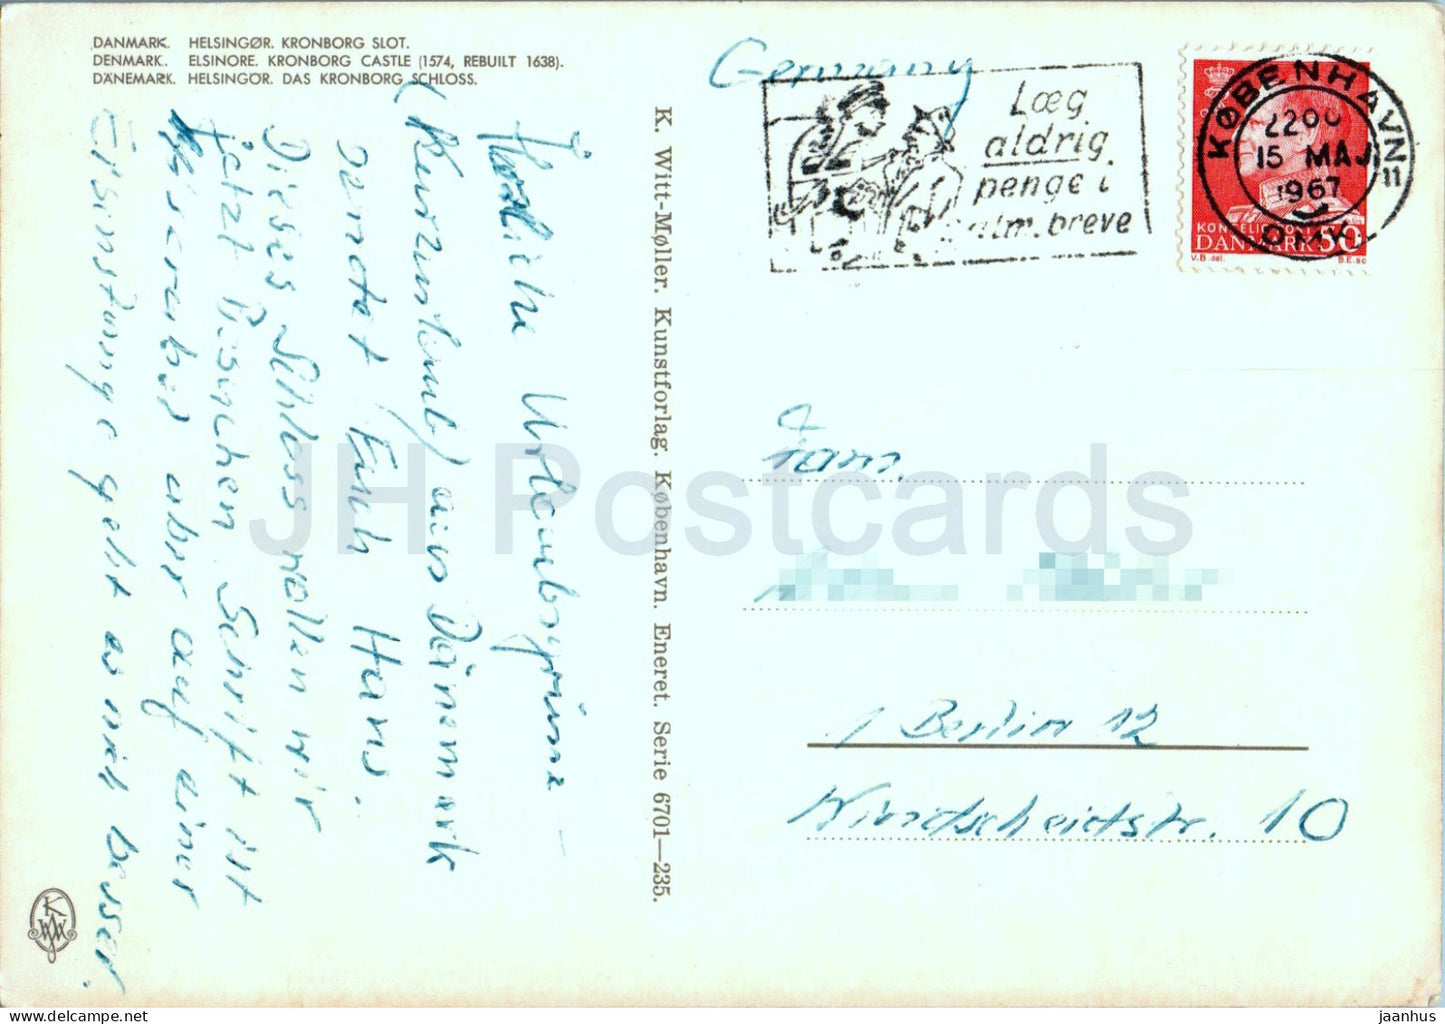 DANMARK. HELSINGØR. KRONBORG SLOT.
DENMARK. ELSINORE. KRONBORG CASTLE (1574, REBUILT 1638).
DÄNEMARK. HELSINGØR. DAS KRONBORG SCHLOSS.
Germany
Læg
aldrig
penge i
alm. breve
KØBENHAVN
2200
15 MAJ
1967
OMK.
11
DANMARK 50
V.B. del.
B.E. sc
Herzliche Urlaubsgrüsse
(Kurzurlaub) aus Dänemark
sendet Euch Hans.
Dieses Schloss wollen wir
jetzt besuchen. Schrift ist
aber auf einer
geht es nicht besser.
K. Witt-Møller. Kunstforlag. København. Eneret. Serie 6701—235.
Fam.
1 Berlin 12
10
KWM
JH Postcards
https://www.ebay.com/str/jhpostcards
jaanhus